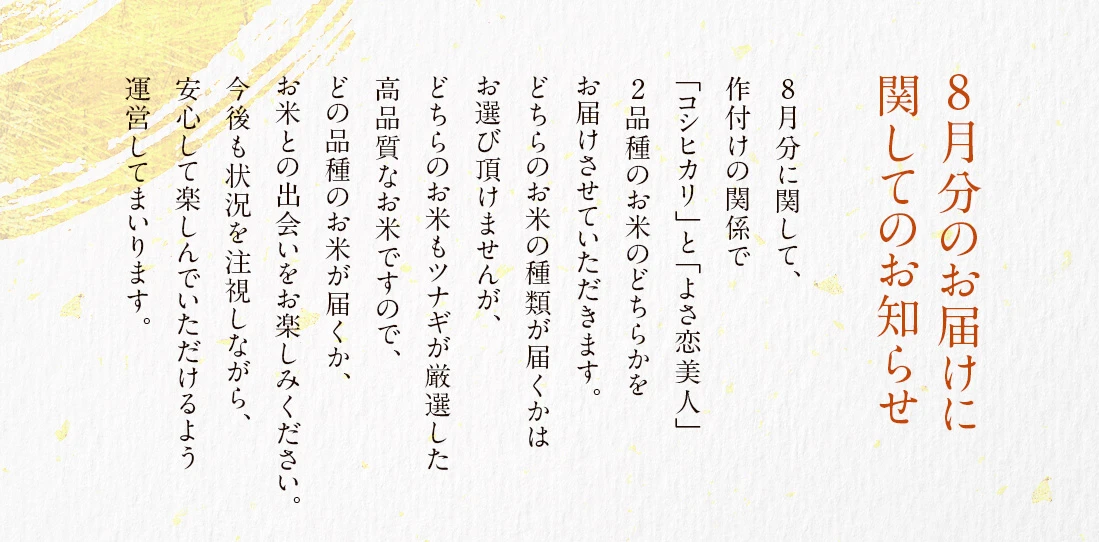 ８月分のお届けに
関してのお知らせ
８月分に関して、
作付けの関係で
「コシヒカリ」と「よさ恋美人」
２品種のお米のどちらかを
お届けさせていただきます。
どちらのお米の種類が届くかは
お選び頂けませんが、
どちらのお米もツナギが厳選した
高品質なお米ですので、
どの品種のお米が届くか、
お米との出会いをお楽しみください。
今後も状況を注視しながら、
安心して楽しんでいただけるよう
運営してまいります。